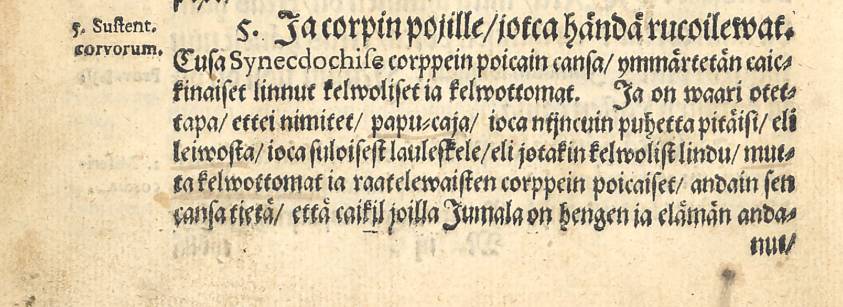 5. Sustent.
corvorum.
5. Ja corpin pojille/ jotca händä rucoilewat.
Cusa Synecdochise corppein poicain cansa/ ymmärtetän caic⸗
kinaiset linnut kelwoliset ia kelwottomat. Ja on waari otet⸗
tapa/ ettei nimitet/ papu⸗caja/ ioca nijncuin puhetta pitäisi/ eli
leiwosta/ ioca suloisest lauleskele/ eli jotakin kelwolist lindu/ mut⸗
ta kelwottomat ia raatelewaisten corppein poicaiset/ andain sen
cansa tietä/ että caikil joilla Jumala on hengen ia elämän anda⸗
nut/